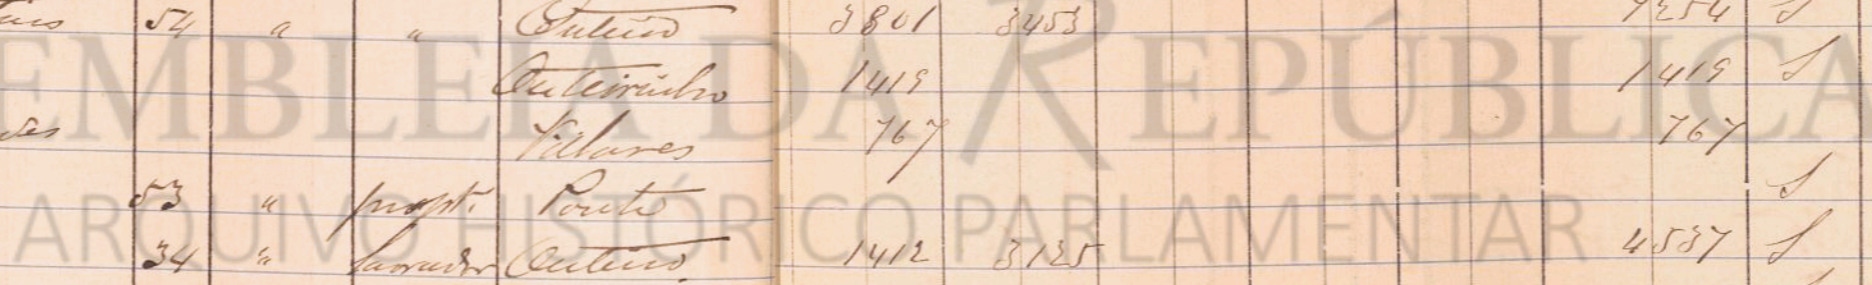 54 " " Outeiro 3801 3453 7254 S
Outeirinho 1419 1419 S
des Vilares 767 767
53 " propt. Ponte S
34 " lavrador Outeiro 1412 3125 4537 S
EMBLEIA DA REPÚBLICA
ARQUIVO HISTÓRICO PARLAMENTAR